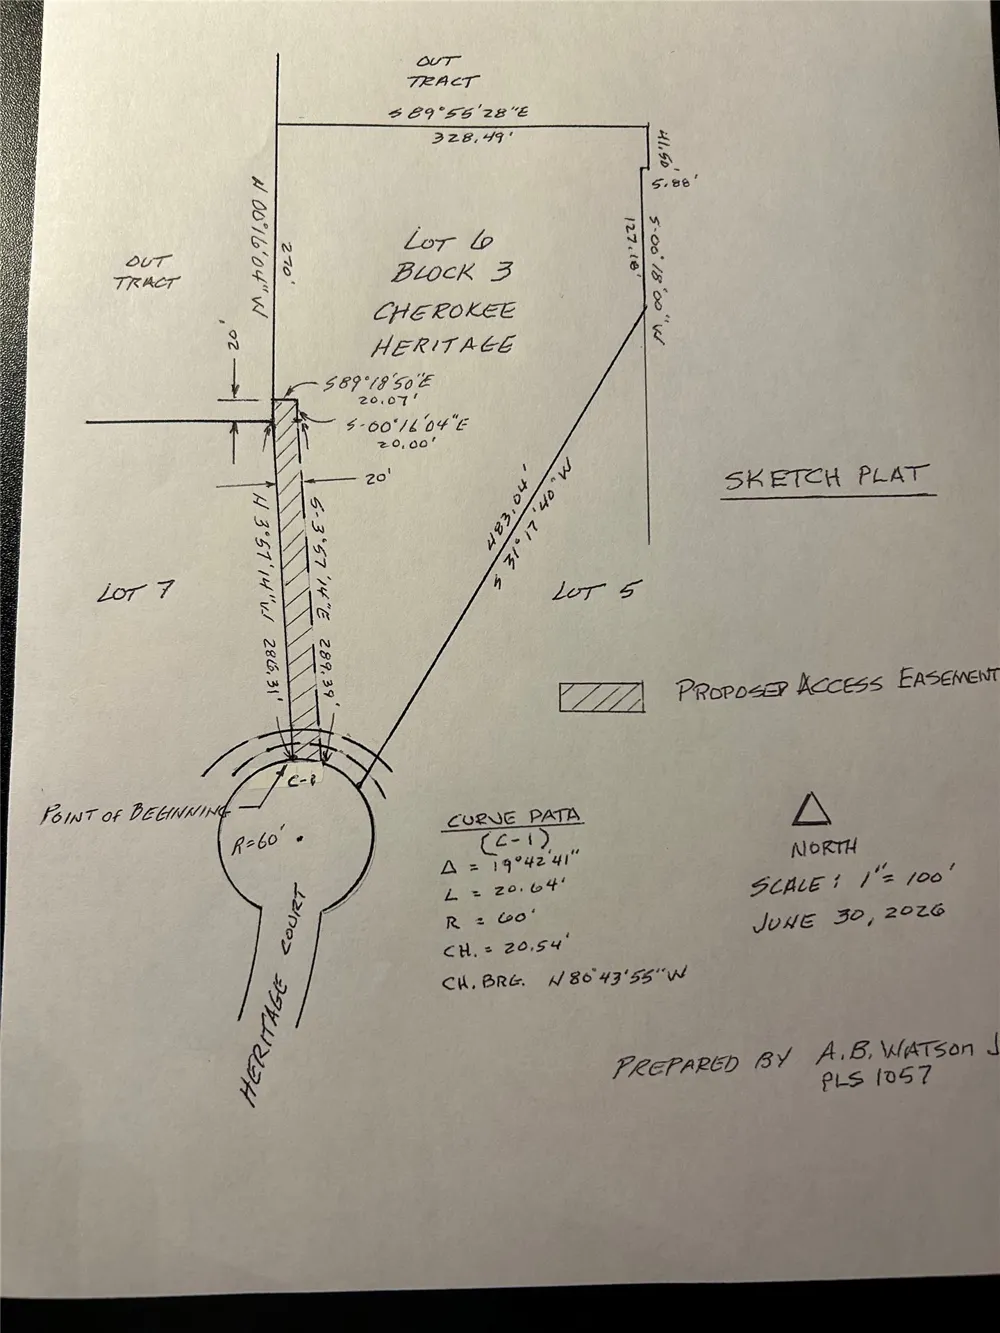 OUT
TRACT
S 89°55'28"E
328.49'
41.50'
5.88'
N 00°16'04" W
270'
127.18'
S-00°18'00" W
LOT 6
BLOCK 3
CHEROKEE
HERITAGE
OUT
TRACT
20'
S89°18'50"E
20.07'
S-00°16'04"E
20.00'
20'
SKETCH PLAT
483.04'
S 31°17'40" W
N 3°57'14" W 286.31'
S-3°57'14"E 289.39'
LOT 7
LOT 5
PROPOSED ACCESS EASEMENT
C-1
POINT OF BEGINNING
R=60'
HERITAGE COURT
CURVE DATA
(C-1)
Δ = 19°42'41"
L = 20.64'
R = 60'
CH. = 20.54'
CH. BRG. N 80°43'55" W
NORTH
SCALE: 1"= 100'
JUNE 30, 2026
PREPARED BY A.B. WATSON J
PLS 1057